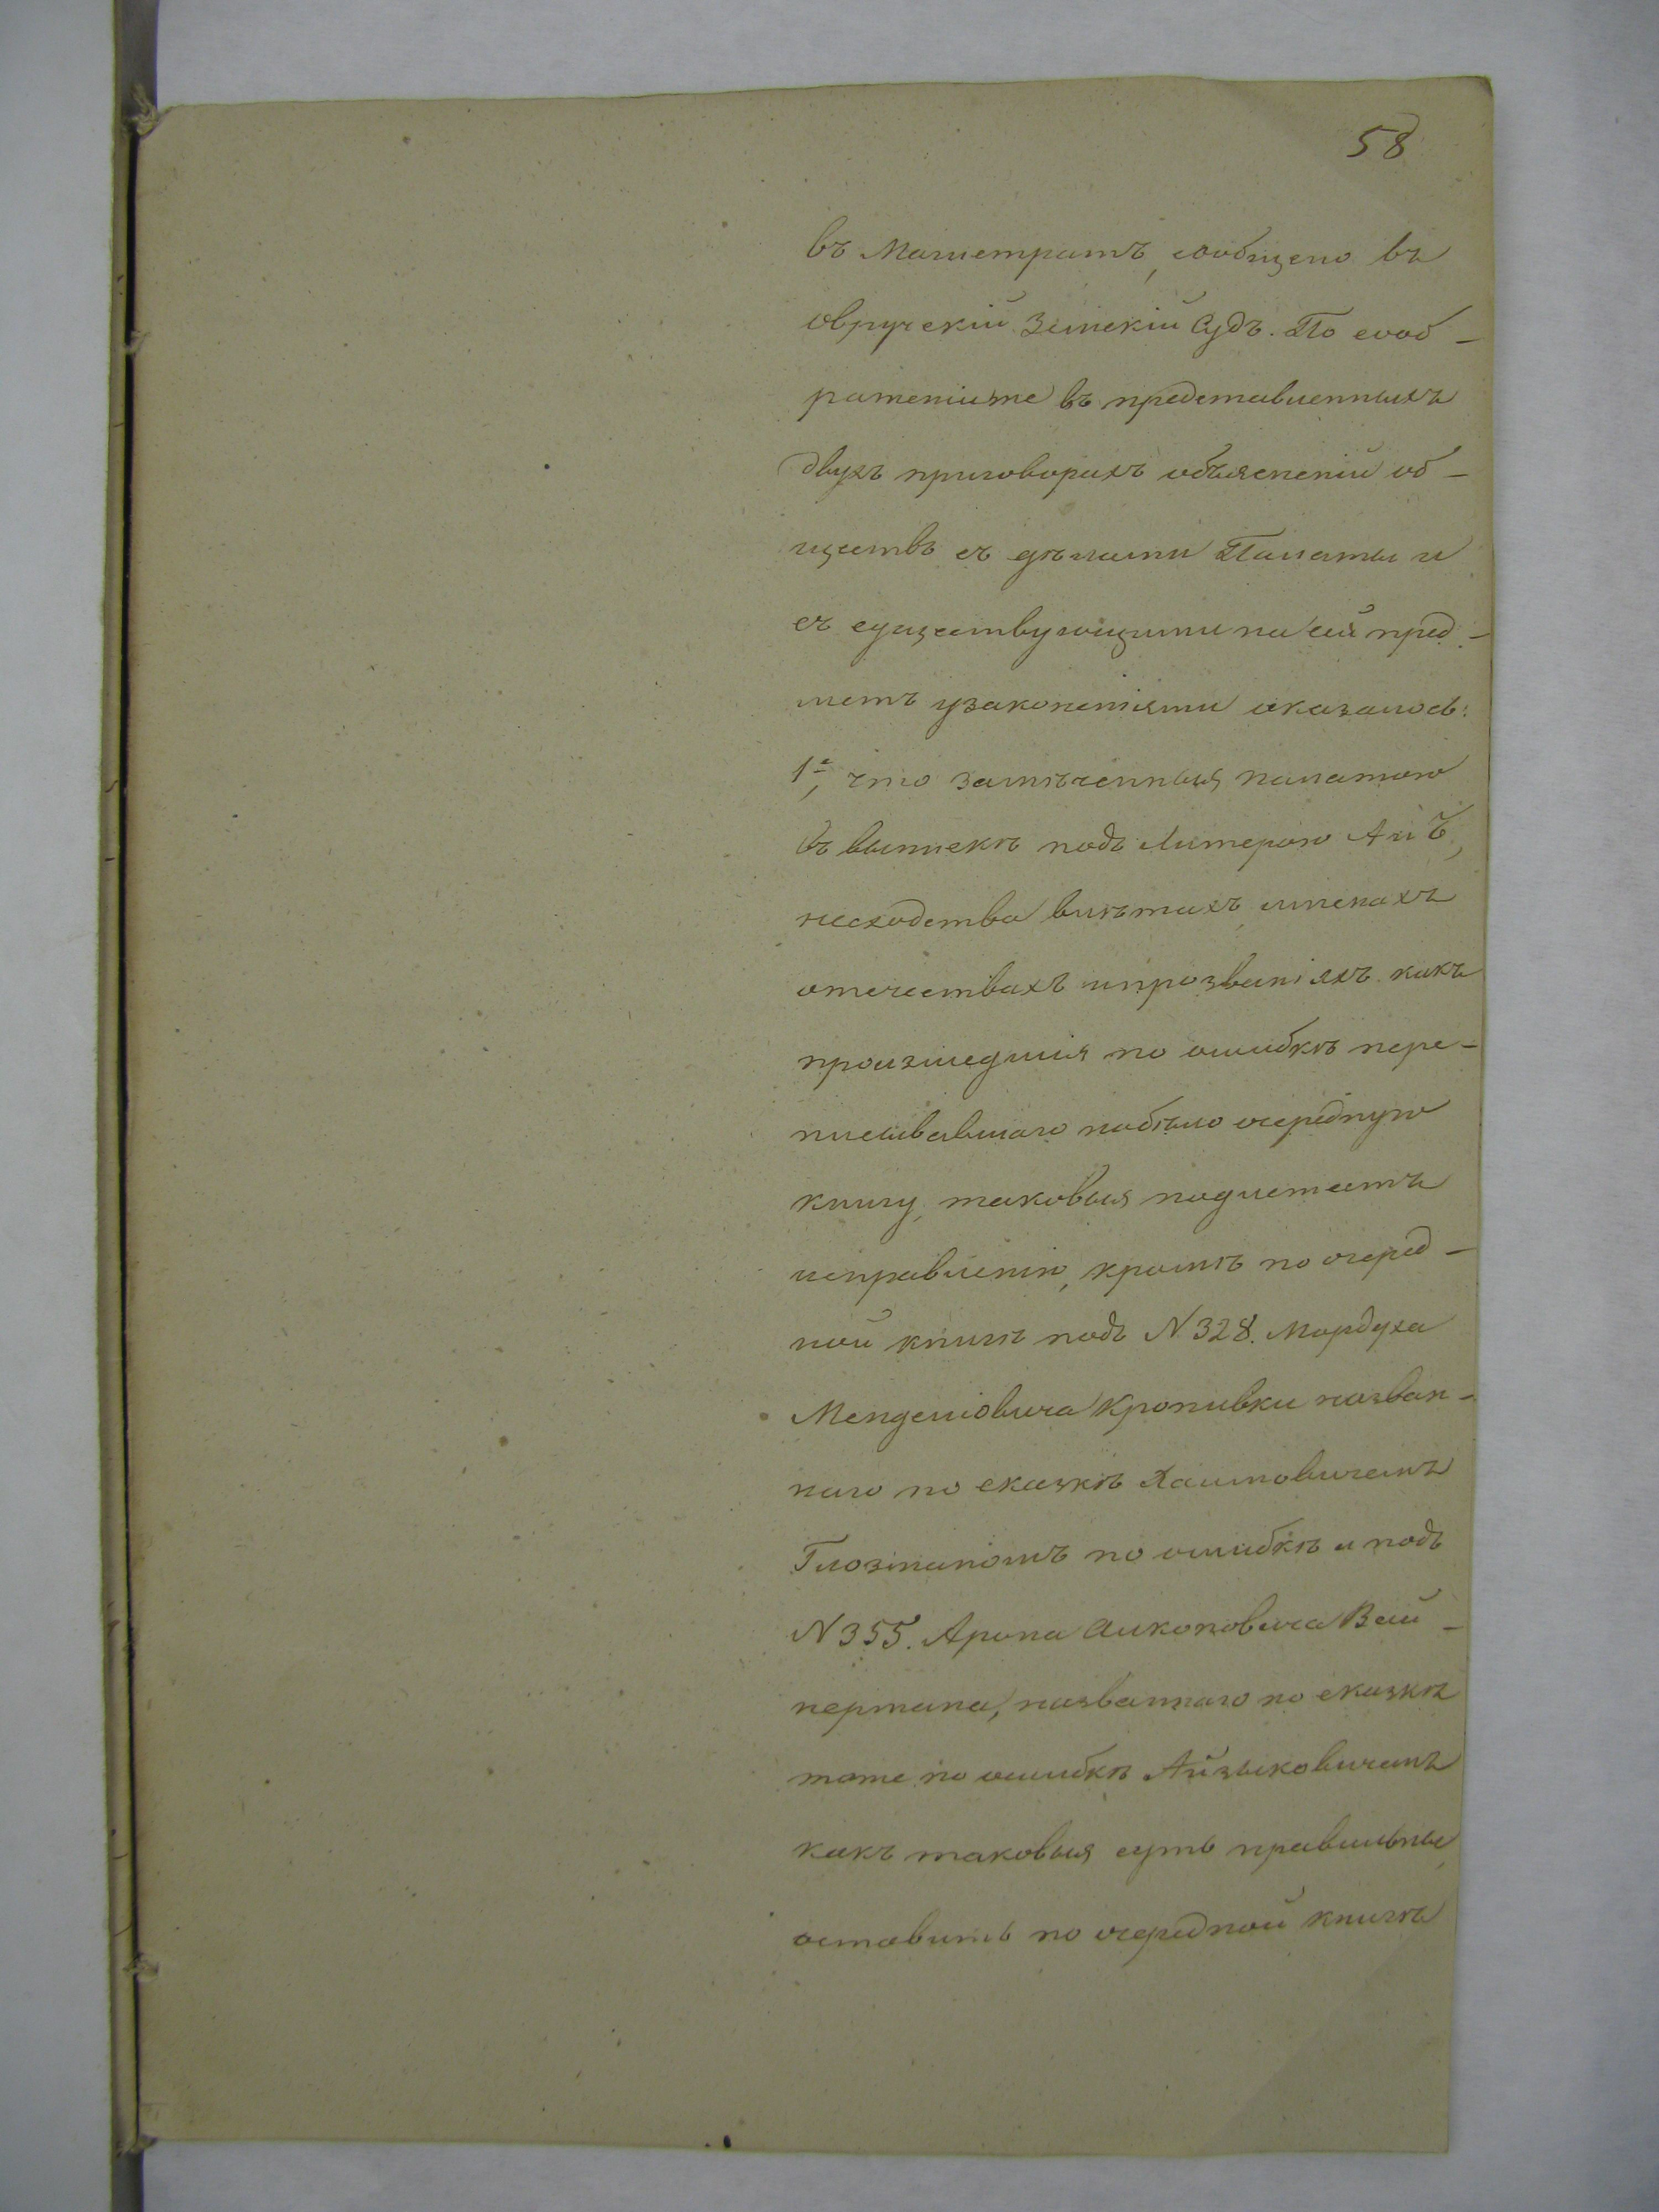 58
въ Магистратъ, сообщено въ
овручскій Земскій Судъ. По сооб-
раженіиже въ представленныхъ
двухъ приговорахъ объясненій об-
ществъ съ дѣлами Палаты и
съ существующими на сей пред-
метъ узаконеніями оказалось:
1е, что замѣченныя палатою
въ выпискѣ подъ Литерою А и Б,
несходства в лѣтахъ, именахъ
отчествахъ ипрозваніяхъ какъ
произшедшия по ошибкѣ пере-
писывавшаго набѣло очередную
книгу, таковыя подлежатъ
исправленію, кромѣ по очеред-
ной книгѣ подъ N 328. Мордуха
Менделіовича Кропивки назван-
наго по сказкѣ Хаимовичемъ
Глозманомъ по ошибкѣ и подъ
N 355. Арона Вай-
нермана, названнаго по сказкѣ
тоже по ошибкѣ Айзыковичемъ
какъ таковыя суть правильны,
оставить по очередной книгѣ